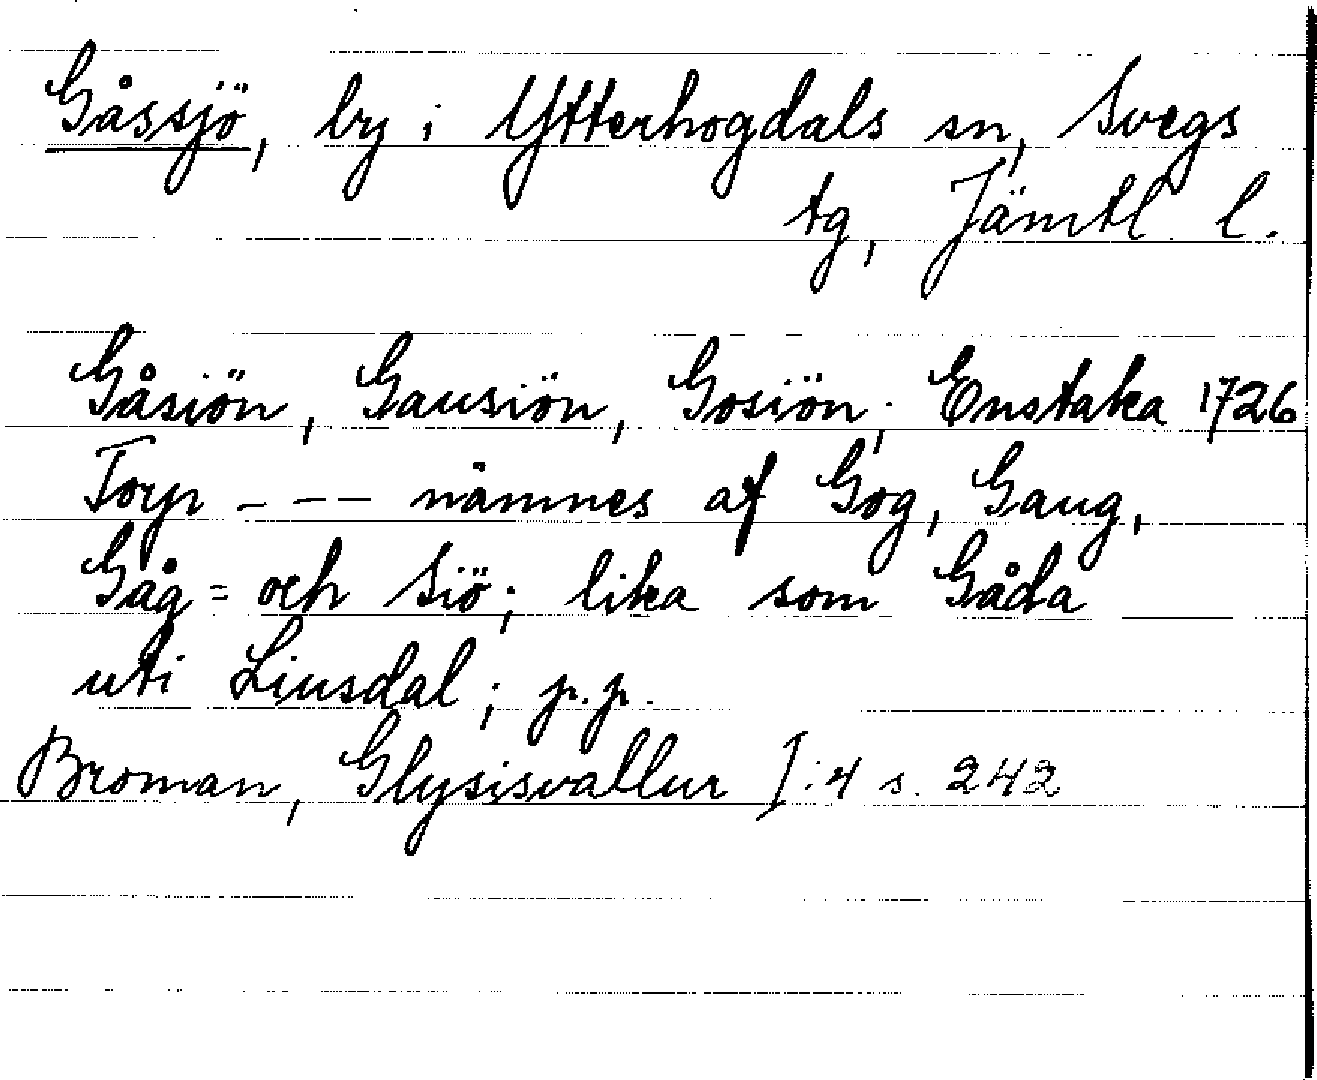 Gåssjö, by i Ytterhogdals sn, Svegs
tg, Jämtl. l.
Gåsiön, Gausiön, Gosiön; Enstaka 1726
Torp - - - nämnes af Gog, Gaug,
Gåg = och Siö; lika som Gåda
uti Liusdal; p.p.
Broman, Glysisvallur I:4 s. 242